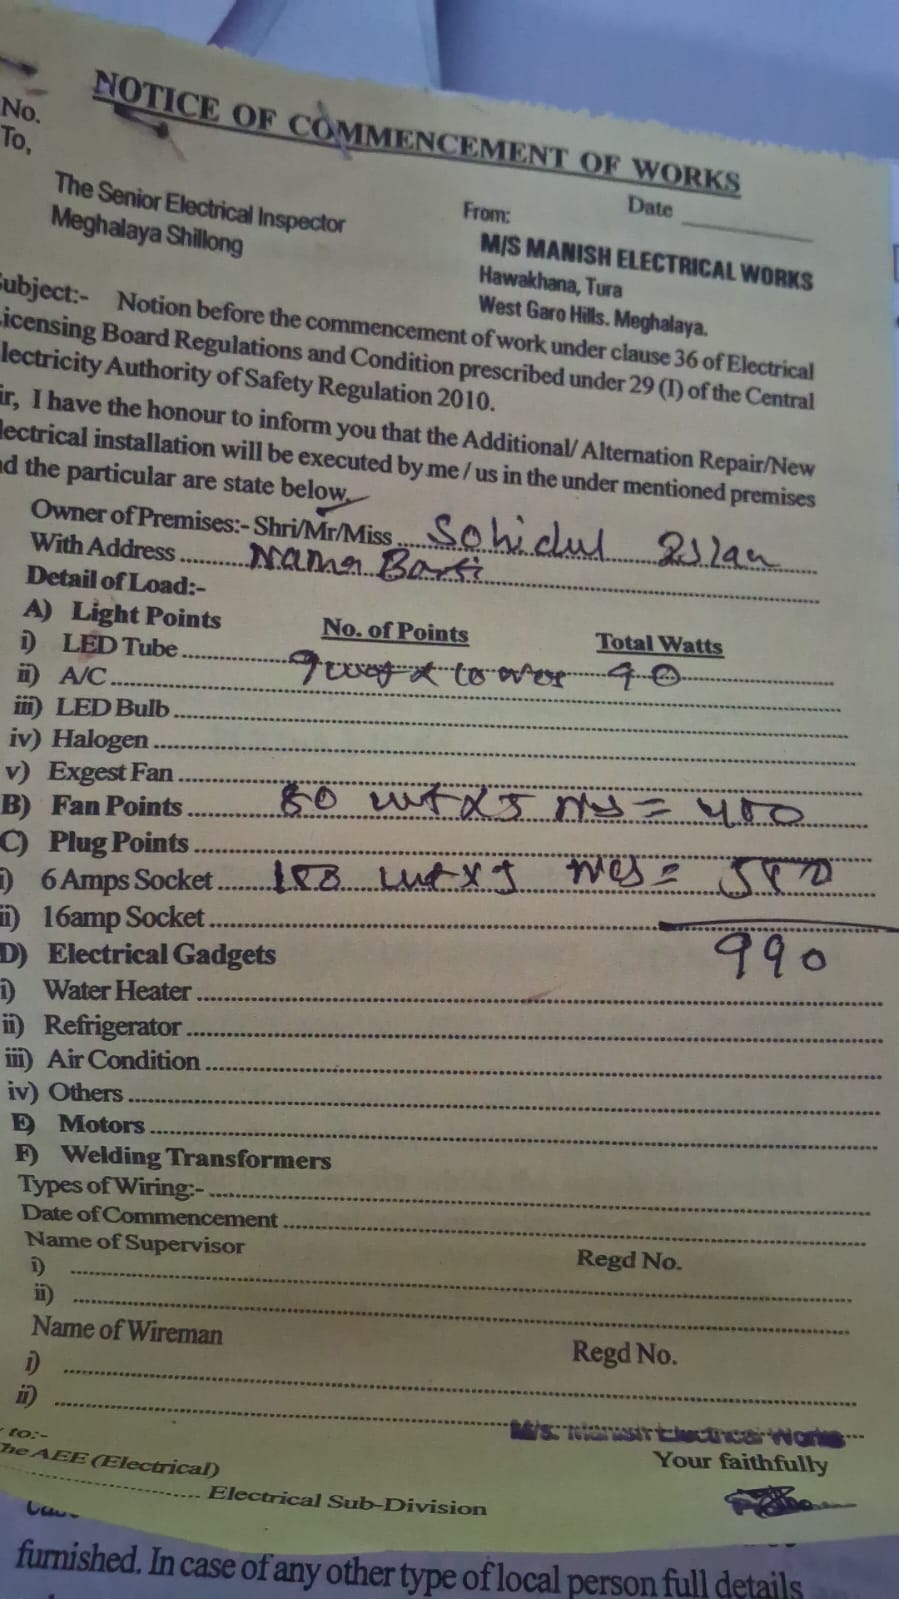 NOTICE OF COMMENCEMENT OF WORKS
No.
Date
To,
The Senior Electrical Inspector
Meghalaya Shillong
From:
M/S MANISH ELECTRICAL WORKS
Hawakhana, Tura
West Garo Hills. Meghalaya.
ubject:- Notion before the commencement of work under clause 36 of Electrical
icensing Board Regulations and Condition prescribed under 29 (I) of the Central
lectricity Authority of Safety Regulation 2010.
ir, I have the honour to inform you that the Additional/ Alternation Repair/New
lectrical installation will be executed by me / us in the under mentioned premises
d the particular are state below,
Owner of Premises:- Shri/Mr/Miss Sohidul
With Address Nama
Detail of Load:-
A) Light Points No. of Points Total Watts
i) LED Tube 9 90
ii) A/C
iii) LED Bulb
iv) Halogen
v) Exgest Fan
B) Fan Points 80 wt x 5 = 400
C) Plug Points
i) 6 Amps Socket wt x 5 =
ii) 16amp Socket
990
D) Electrical Gadgets
i) Water Heater
ii) Refrigerator
iii) Air Condition
iv) Others
E) Motors
F) Welding Transformers
Types of Wiring:-
Date of Commencement
Name of Supervisor Regd No.
i)
ii)
Name of Wireman Regd No.
i)
ii)
M/s. Manish Electrical Works
to:-
he AEE (Electrical)
Your faithfully
Electrical Sub-Division
furnished. In case of any other type of local person full details